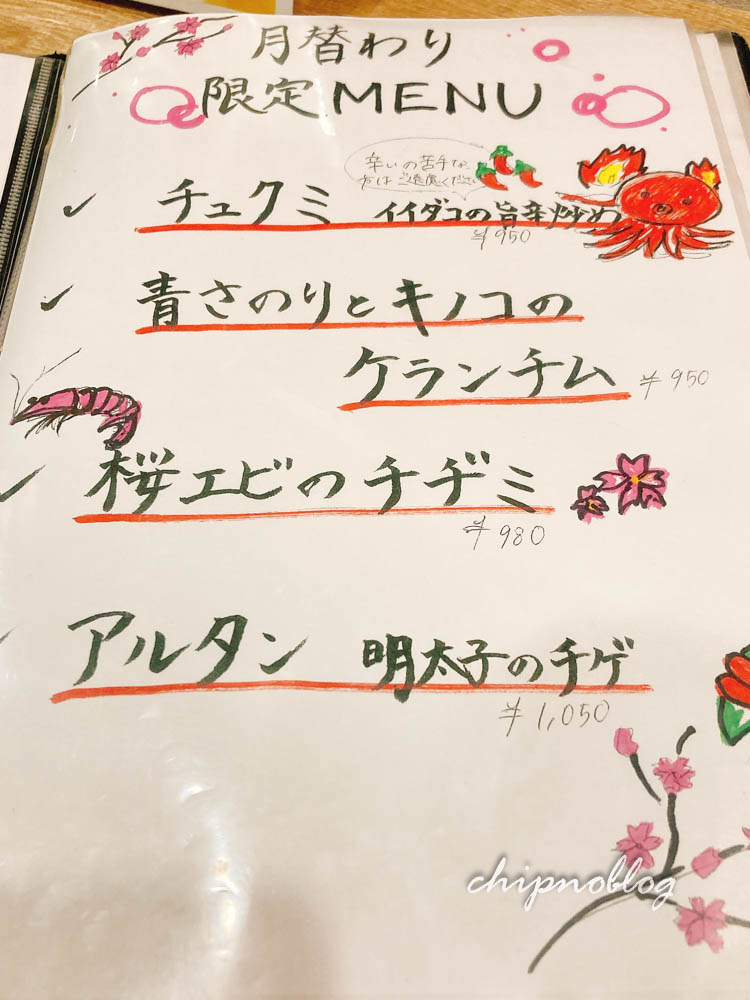 月替わり
限定MENU
辛いの苦手な
方はご遠慮ください
チュクミ イイダコの旨辛炒め
¥950
青さのりとキノコの
ケランチム ¥950
桜エビのチヂミ
¥980
アルタン 明太子のチゲ
¥1,050
chipnoblog